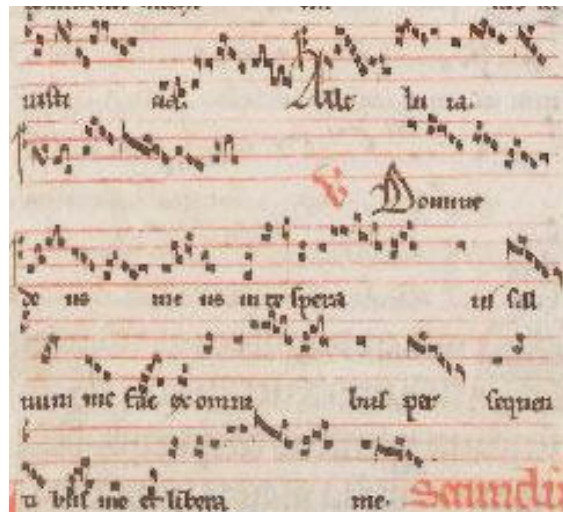 Alle lu ia.
Domine
de us me us in te spera ui sal
uum me fac ex omni bus per sequen
ti bus me et libera me.